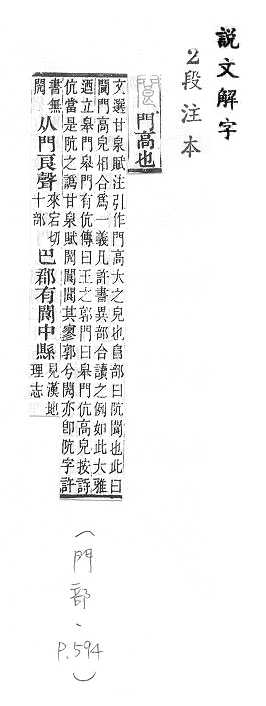 說文解字
2段注本
閬 門高也
文選甘泉賦注引作門高大之皃也𨸏部曰阬閬也此曰
閬門高皃相合爲一義凡許書異部合讀之例如此大雅
迺立皋門皋門有伉傳曰王之郭門曰皋門伉高皃按詩
伉當是阬之譌甘泉賦閌閬閬其寥郭兮閌亦卽阬字許
書無閌从門良聲來宕切十部巴郡有閬中縣見漢地理志
(門部、P.594)